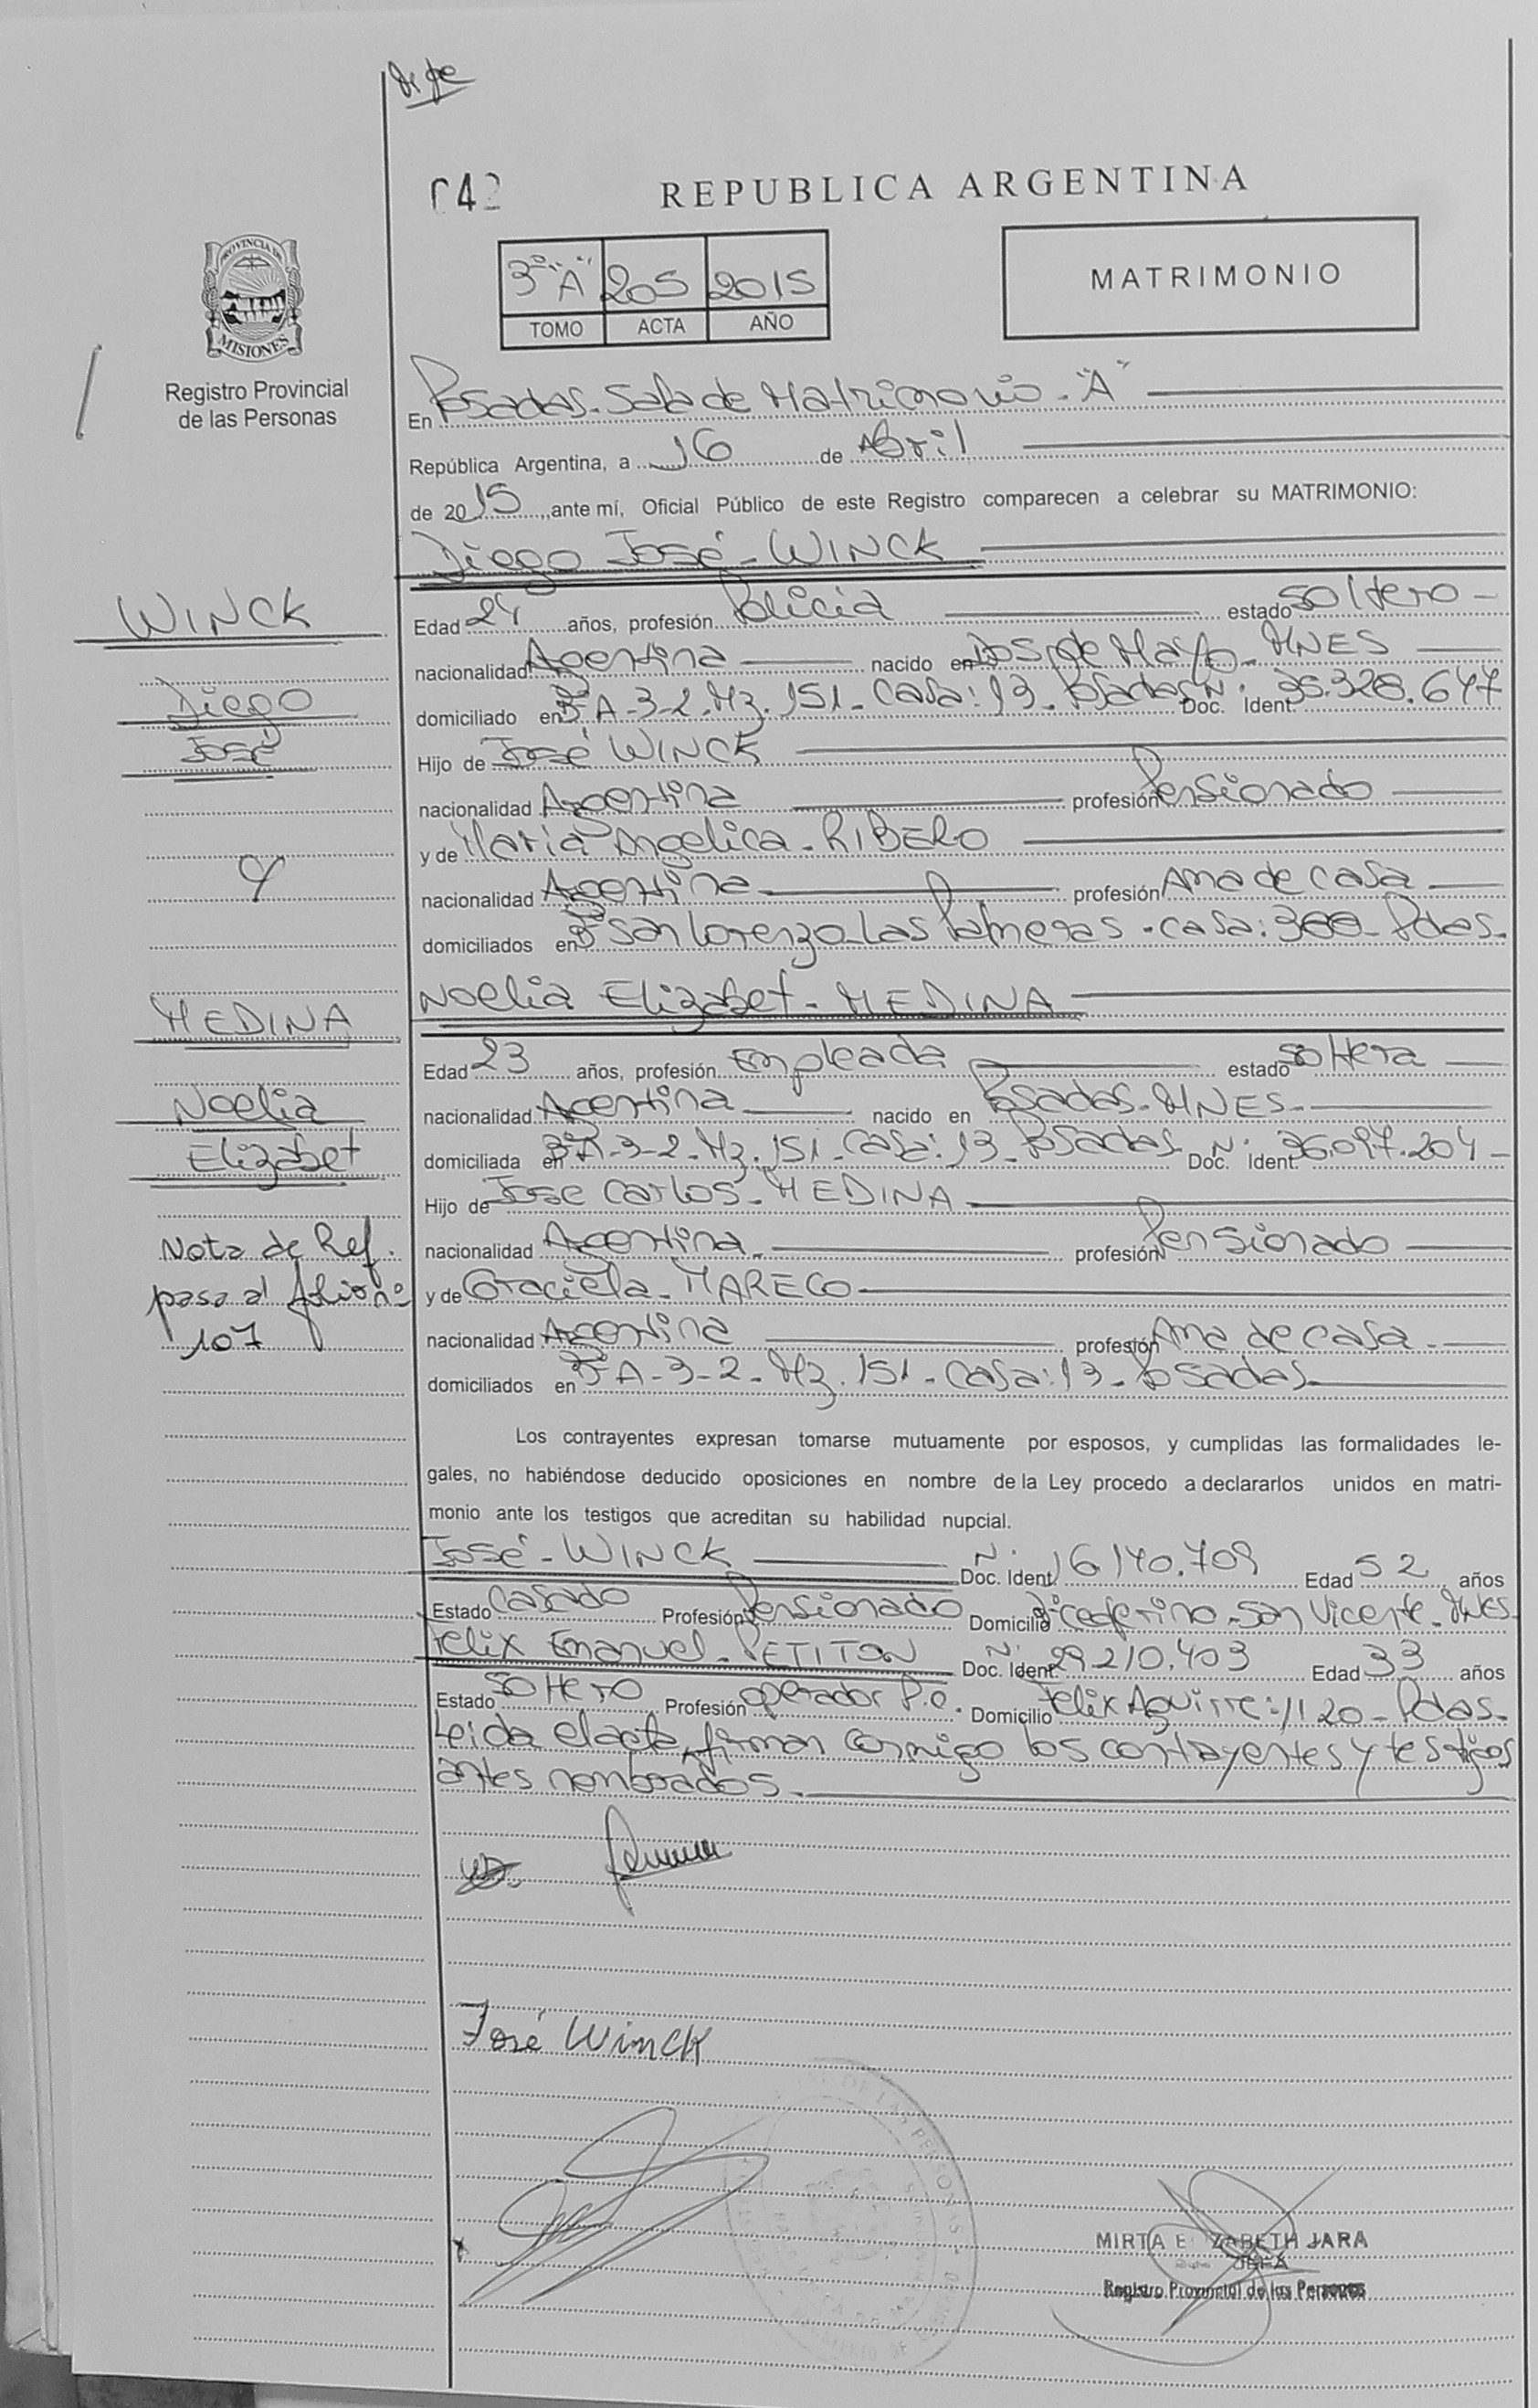 C42
REPUBLICA ARGENTINA
PROVINCIA DE
MISIONES
Registro Provincial
de las Personas
3º "A" 205 2015
TOMO ACTA AÑO
MATRIMONIO
En Posadas-Sala de Matrimonio-"A"
República Argentina, a 16 de Abril
de 2015, ante mí, Oficial Público de este Registro comparecen a celebrar su MATRIMONIO:
Diego José-WINCK
WINCK
Diego
José
Y
MEDINA
Noelia
Elizabet
Nota de Ref.
pasa al folio nº
107
Edad 24 años, profesión Policia estado soltero-
nacionalidad Argentina nacido en Dos de Mayo-MNES
domiciliado en Bº A-3-2-Mz.151-Casa:13-Posadas Doc. Ident. Nº 35.328.647
Hijo de José WINCK
nacionalidad Argentina profesión Pensionado
y de Maria Angelica-RIBERO
nacionalidad Argentina profesión Ama de casa
domiciliados en Bº San Lorenzo-Las Palmeras-casa:300-Pdas.
Noelia Elizabet-MEDINA
Edad 23 años, profesión Empleada estado soltera
nacionalidad Argentina nacido en Posadas-MNES-
domiciliada en Bº A-3-2-Mz.151-Casa:13-Posadas Doc. Ident. Nº 36.097.204-
Hijo de Jose Carlos-MEDINA
nacionalidad Argentina profesión Pensionado
y de Graciela-MARECO
nacionalidad Argentina profesión Ama de casa-
domiciliados en Bº A-3-2-Mz.151-Casa:13-Posadas
Los contrayentes expresan tomarse mutuamente por esposos, y cumplidas las formalidades le-
gales, no habiéndose deducido oposiciones en nombre de la Ley procedo a declararlos unidos en matri-
monio ante los testigos que acreditan su habilidad nupcial.
José-WINCK Doc. Ident. Nº 16.140.709 Edad 52 años
Estado Casado Profesión Pensionado Domicilio Bº Ceferino-San Vicente-MNES
Felix Emanuel-PETITON Doc. Ident. Nº 29.210.403 Edad 33 años
Estado soltero Profesión operador P.C. Domicilio Felix Aguirre:1120-Pdas.
Leida el acta, firman conmigo los contrayentes y testigos
antes nombrados.
José Winck
MIRTA ELIZABETH JARA
JEFA
Registro Provincial de las Personas